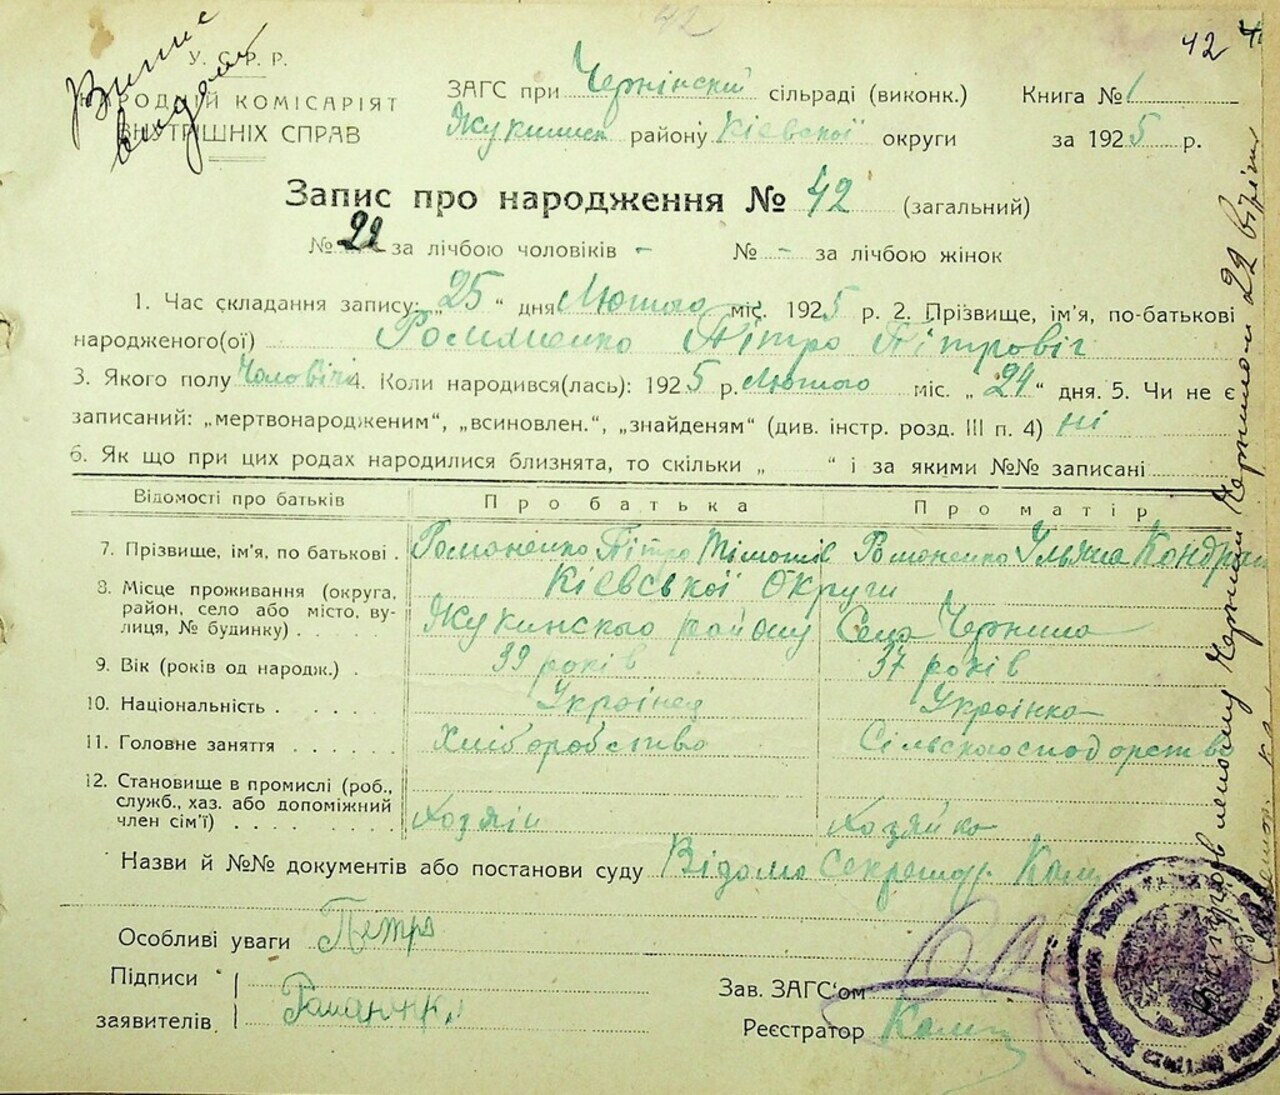 42
42
У. С. Р. Р.
НАРОДНІЙ КОМІСАРІЯТ
ВНУТРІШНІХ СПРАВ
ЗАГС при Чернінскій сільраді (виконк.) Книга № 1
району Кієвскої округи за 1925 р.
Запис про народження № 42 (загальний)
№ 22 за лічбою чоловіків - № - за лічбою жінок
1. Час складання запису: „25“ дня Лютого міс. 1925 р. 2. Прізвище, ім'я, по-батькові
народженого(ої) Романенко Пітро Пітровіч
3. Якого полу Чоловічі 4. Коли народився(лась): 1925 р. Лютого міс. „24“ дня. 5. Чи не є
записаний: „мертвонародженим“, „всиновлен.“, „знайденям“ (див. інстр. розд. III п. 4) ні
6. Як що при цих родах народилися близнята, то скільки „ “ і за якими №№ записані
Відомості про батьків Про батька Про матір
7. Прізвище, ім'я, по батькові . Романенко Пітро Тімотів Романенко Ульяна Кондрат
8. Місце проживання (округа, район, село або місто, вулиця, № будинку) . . . . Кієвської Округи
Жукинского району Села Чернина
9. Вік (років од народж.) . 39 років 37 років
10. Національність . . . . Україней Українка
11. Головне заняття . . . . . . Хліборобство Сільскогосподорство
12. Становище в промислі (роб.,
служб., хаз. або допоміжний
член сім'ї) . . . . . . . . Хозяін Хозяйка
Назви й №№ документів або постанови суду Відомо Секретар.
Особливі уваги Петро
Підписи
заявителів
Зав. ЗАГС'ом
Реєстратор